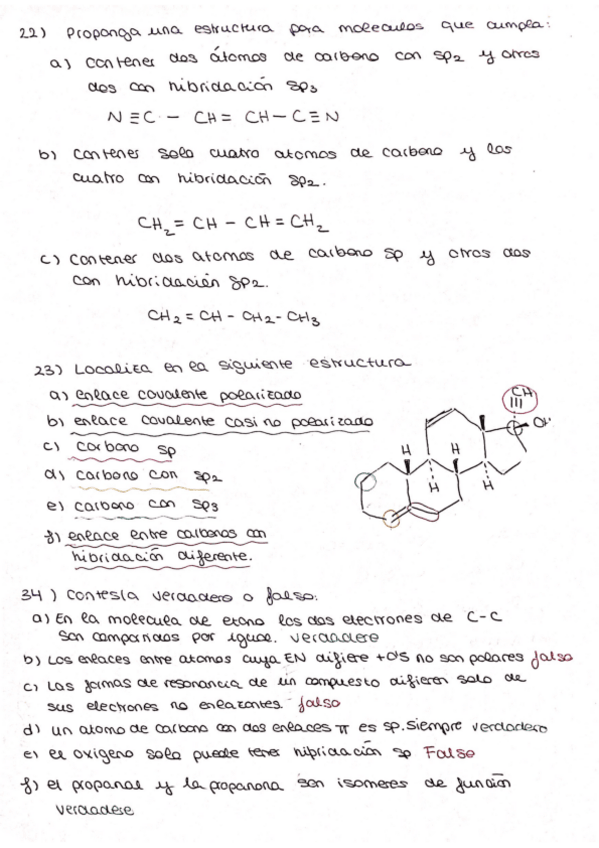 22) Proponga una estructura para moleculas que cumpla:
a) contener dos átomos de carbono con sp2 y otros
dos con hibridación sp3
N≡C - CH= CH-C≡N
b) contener solo cuatro atomos de carbono y los
cuatro con hibridación sp2.
CH2=CH - CH=CH2
c) Contener dos atomos de carbono sp y otros dos
con hibridación sp2.
CH2=CH - CH2-CH3
23) Localiza en la siguiente estructura
a) enlace covalente polarizado
b) enlace covalente casi no polarizado
c) carbono sp
d) carbono con sp2
e) carbono con sp3
f) enlace entre carbonos con
hibridación diferente.
CH
OH
H H
H H
34) Contesta verdadero o falso:
a) En la molecula de etano los dos electrones de C-C
son compartidos por igual. verdadero
b) Los enlaces entre atomos cuya EN difiere +0'5 no son polares falso
c) Las formas de resonancia de un compuesto difieren solo de
sus electrones no enlazantes falso
d) un atomo de carbono con dos enlaces π es sp. siempre verdadero
e) el oxigeno solo puede tener hibridación sp Falso
f) el propanal y la propanona son isomeros de función
verdadero